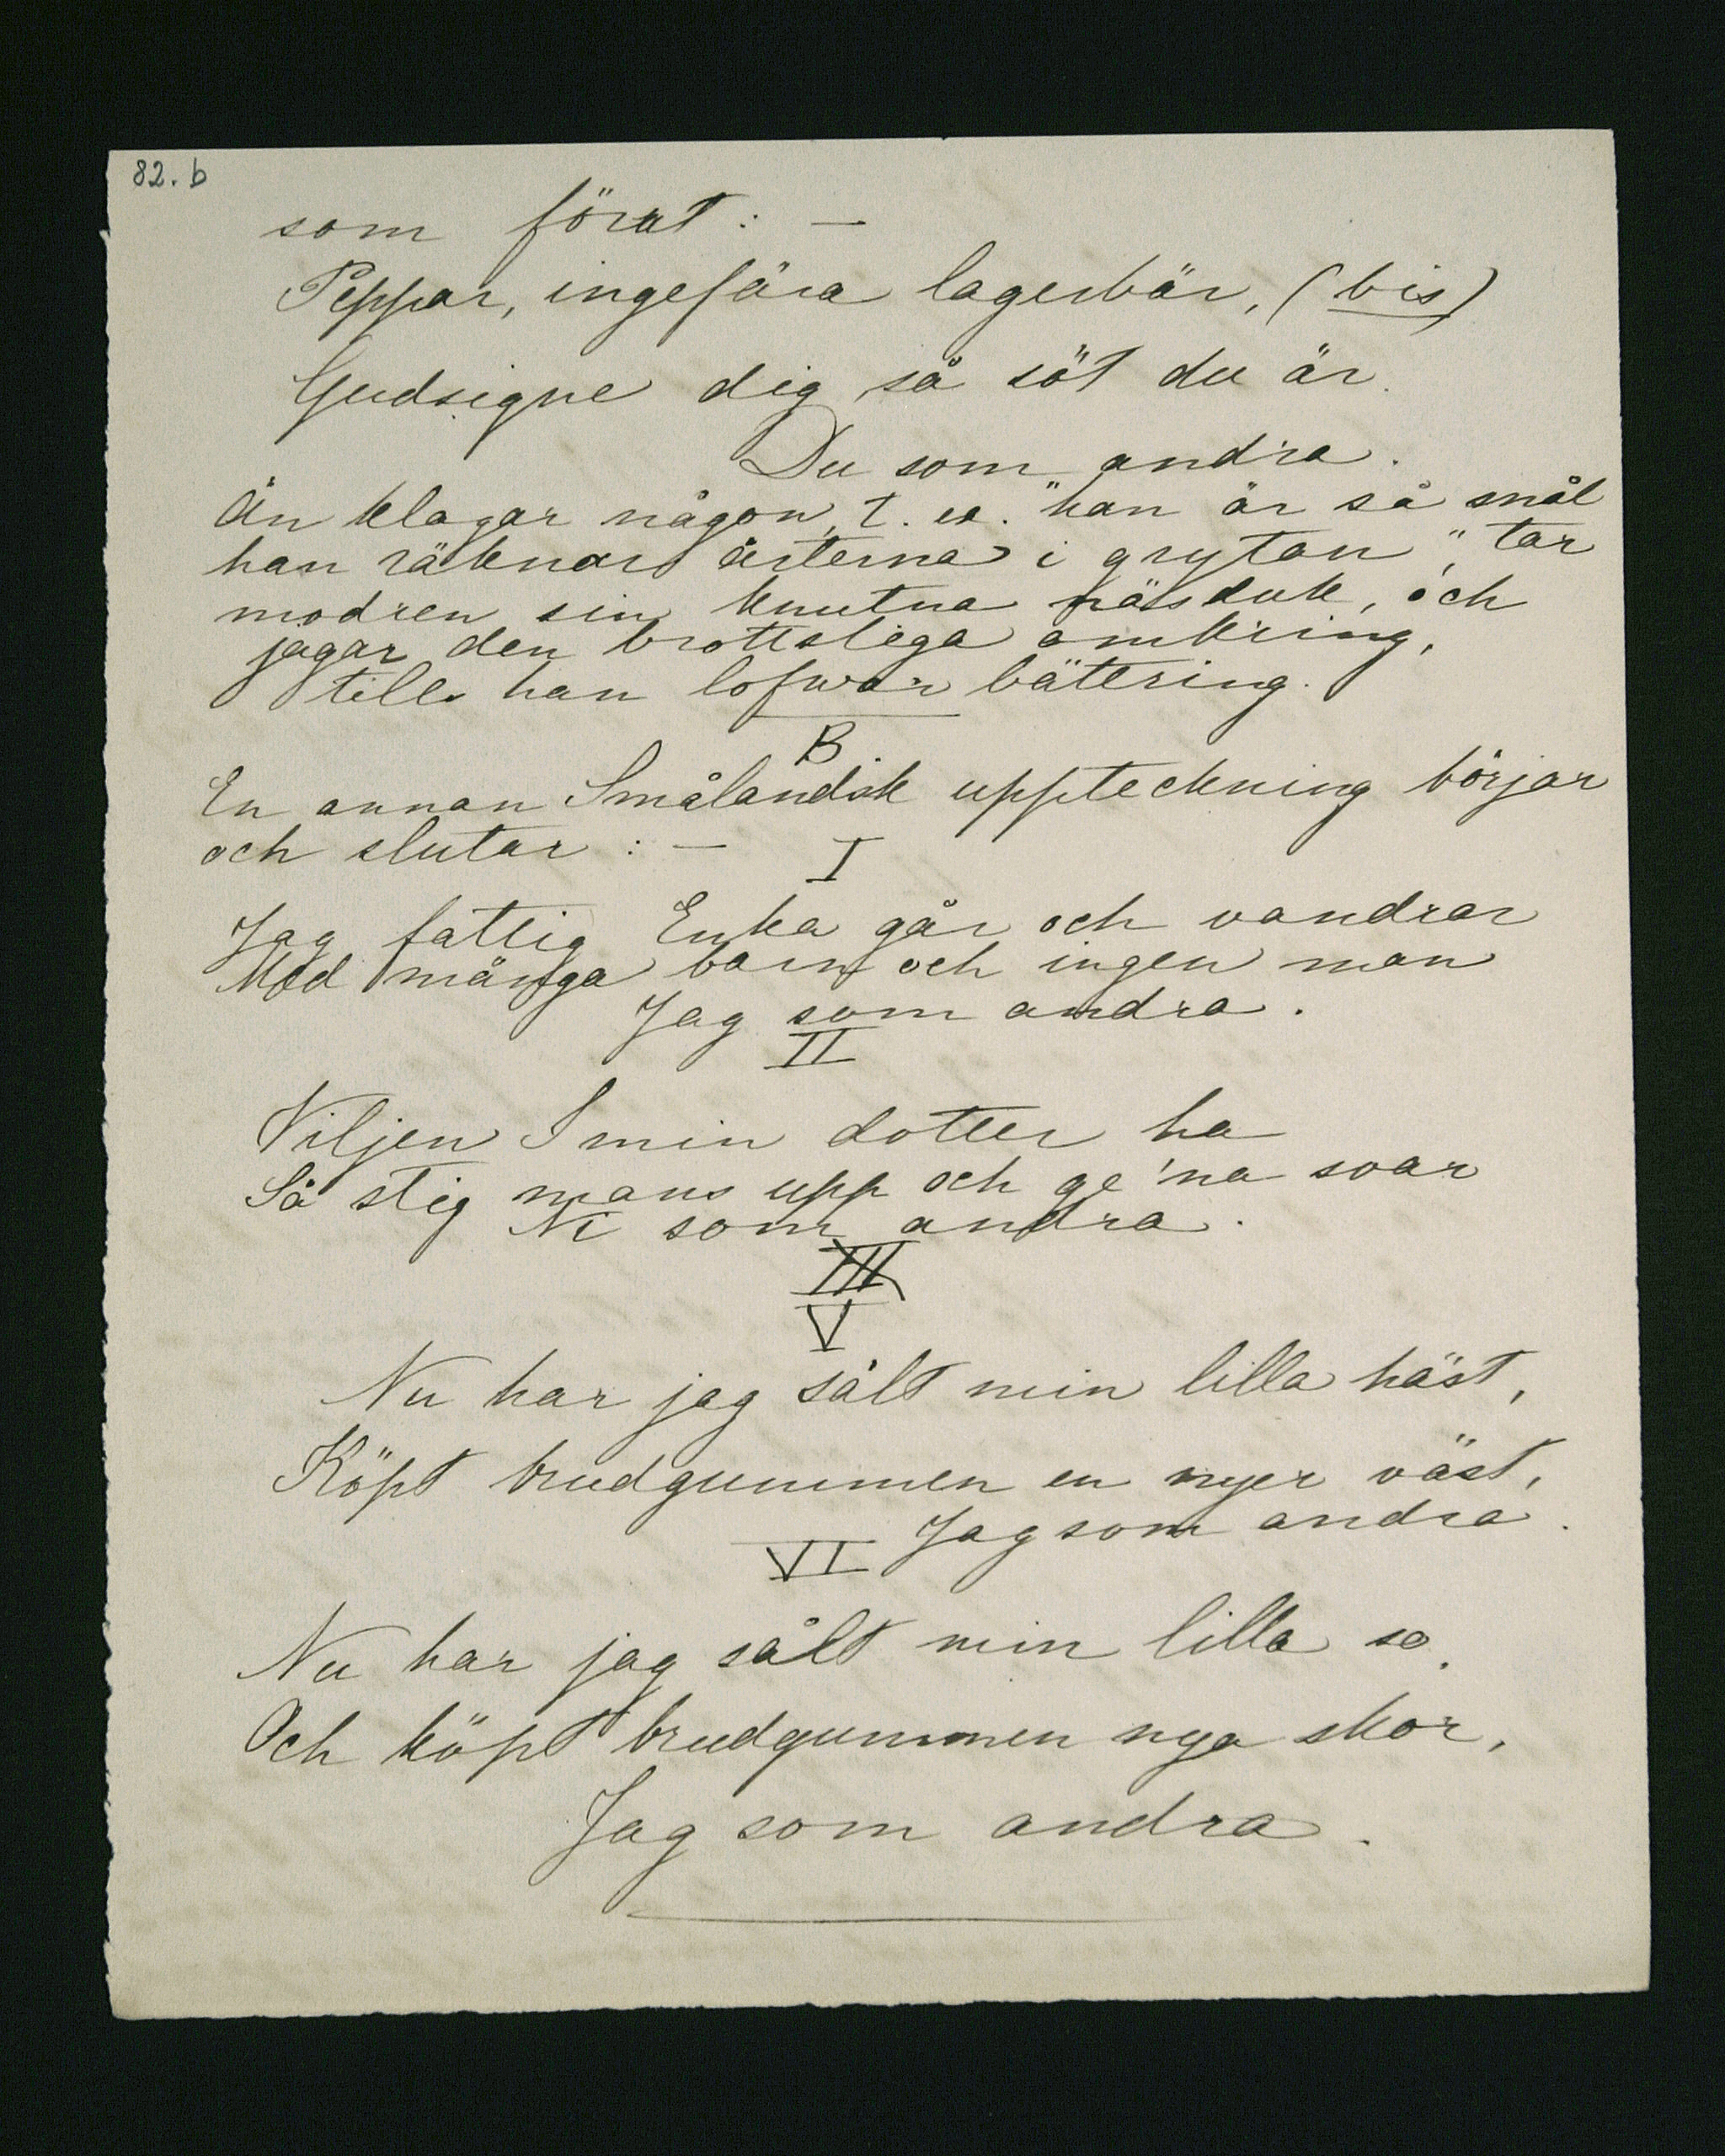 82. b
som förut: —
Peppar, ingefära lagerbär, (bis)
Gudsigne dig så söt du är.
Du som andra.
Än klagar någon, t. ex. "han är så snål
han räknar ärterna i grytan", tar
modren sin knutna näsduk, och
jagar den brottsliga omkring,
tills han lofwar bättring.
B
En annan Småländsk uppteckning börjar
och slutar: —
I
Jag fattig Enka går och vandrar
Med många barn och ingen man
Jag som andra.
II
Viljen I min dotter ha
Så stig mans upp och ge 'na svar
Ni som andra.
III
V
Nu har jag sålt min lilla häst,
Köpt brudgummen en nyer väst,
Jag som andra.
VI
Nu har jag sålt min lilla so,
Och köpt brudgummen nya skor,
Jag som andra.